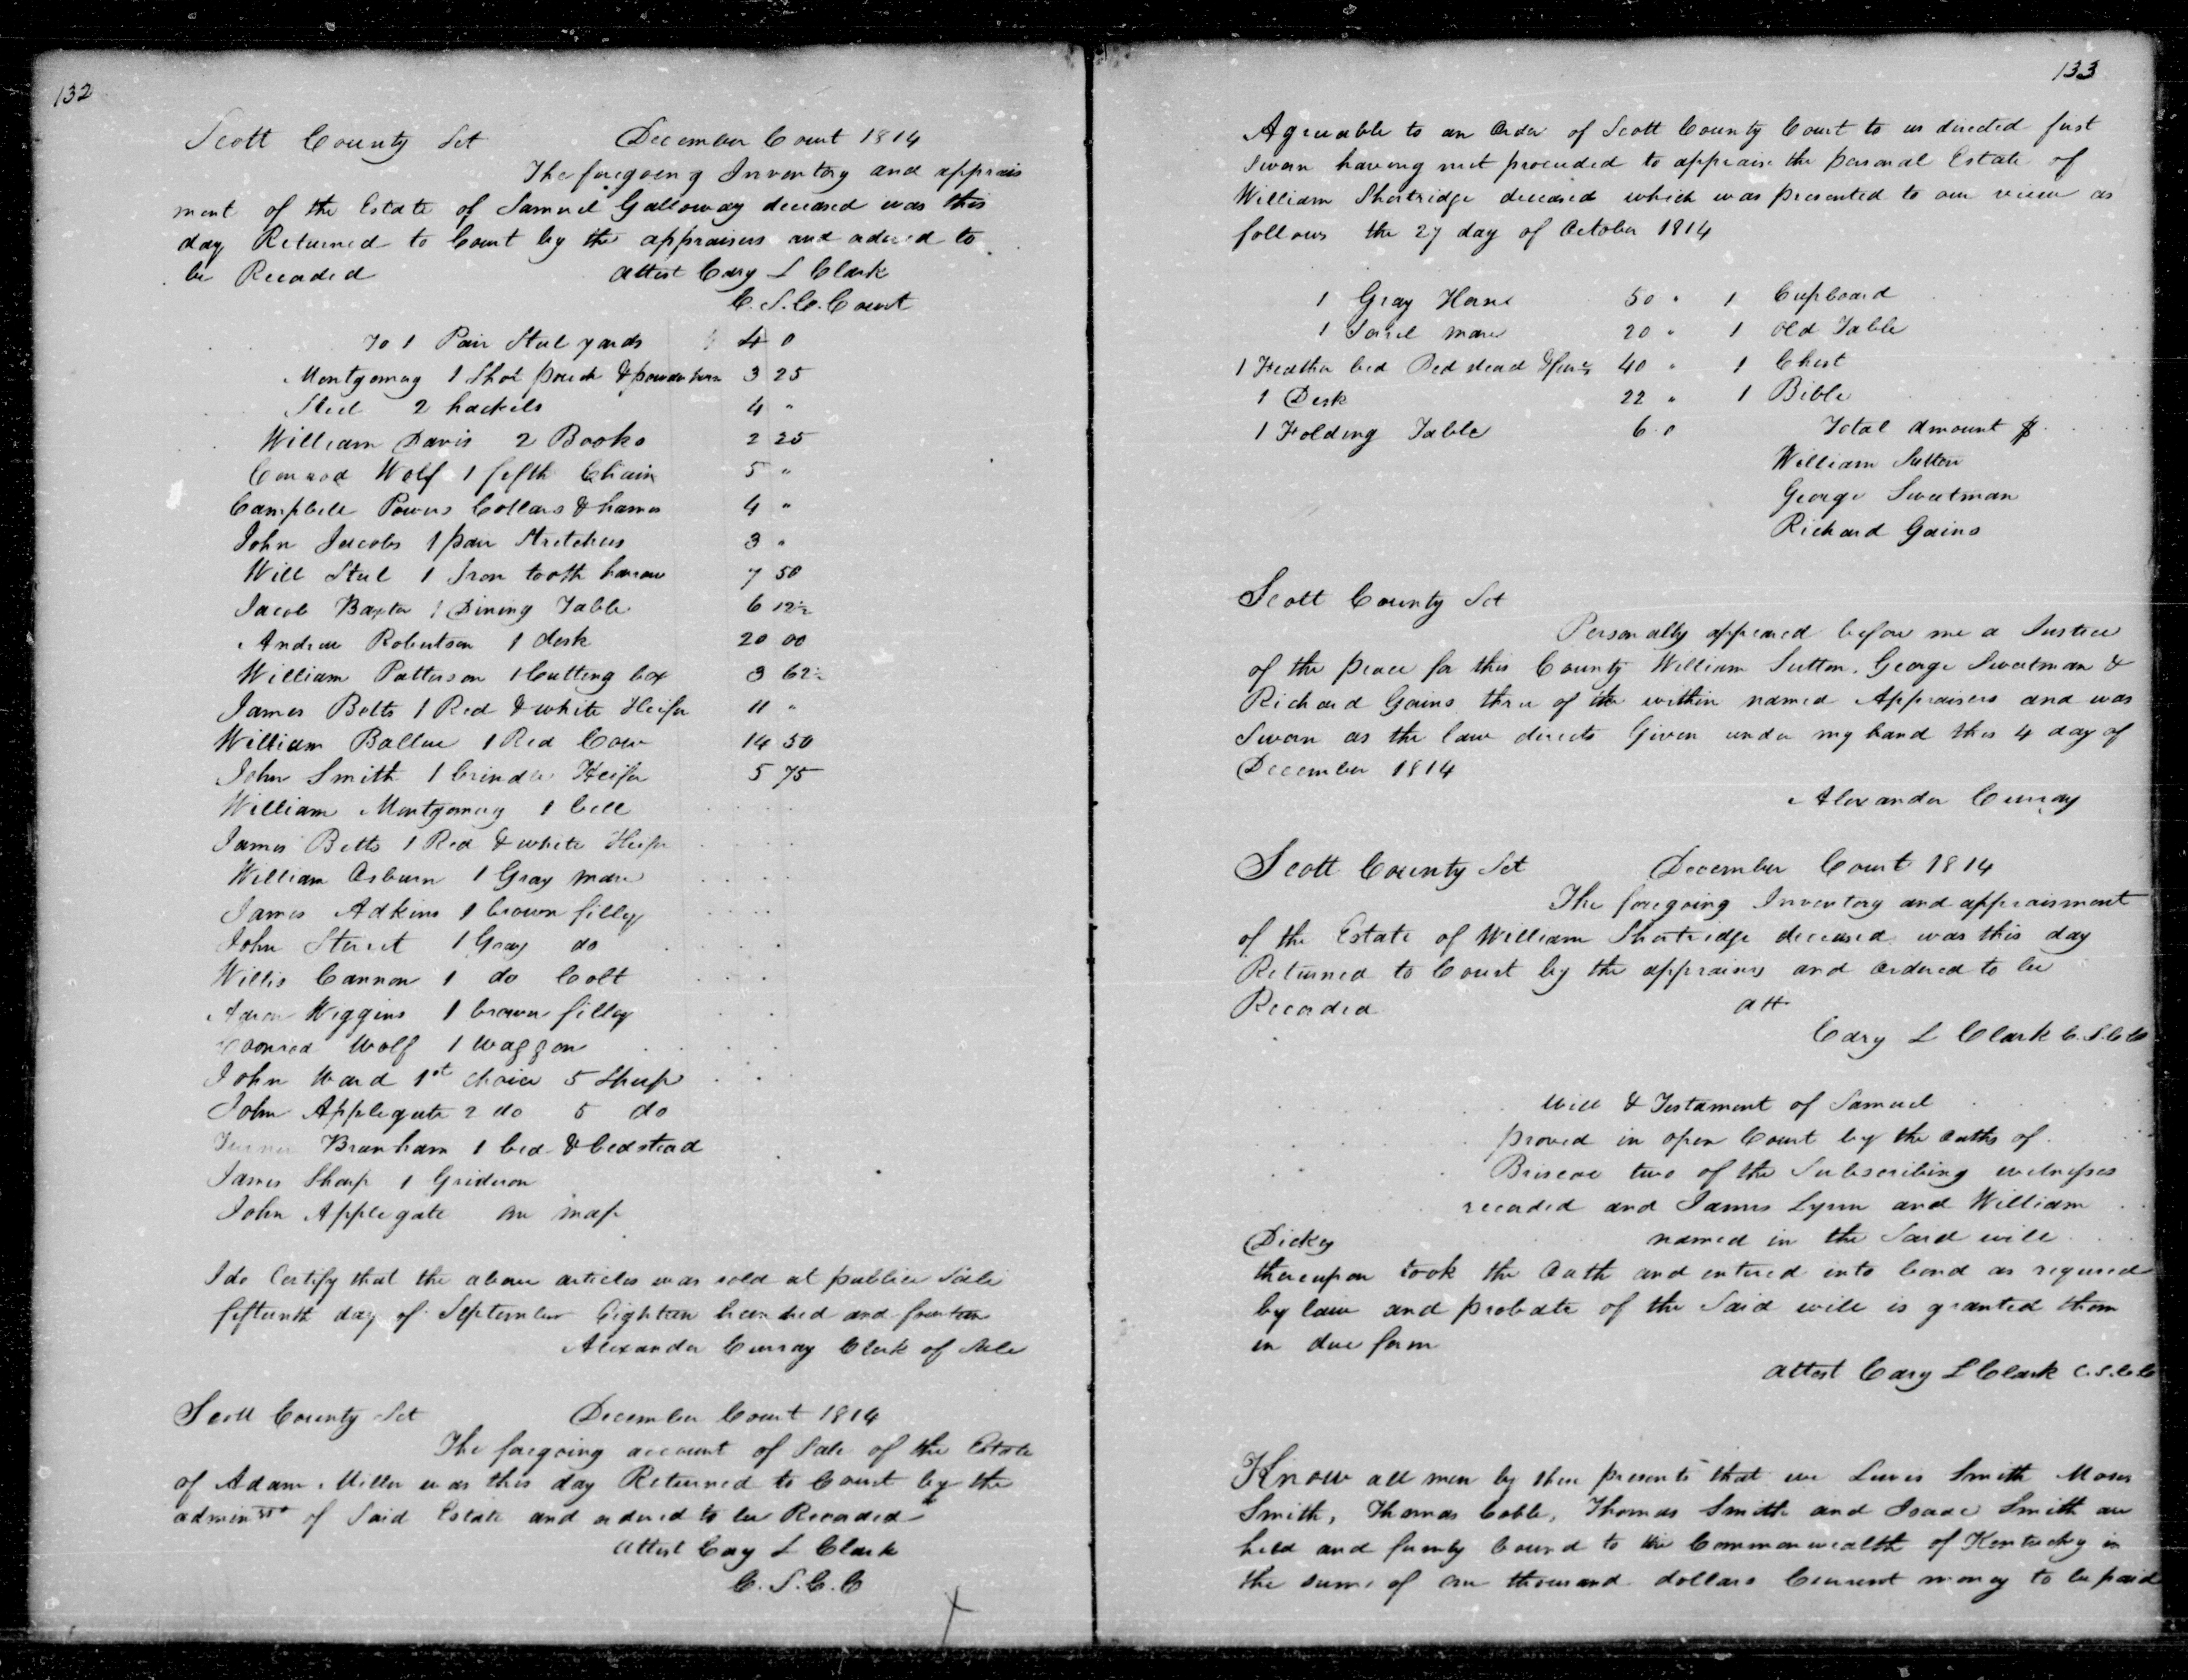 132
Scott County Sct December Court 1814
The foregoing Inventory and apprais
ment of the Estate of Samuel Galloway deceased was this
day Returned to Court by the appraisers and ordered to
be Recorded attest Cary L Clark
C. S. C. Court
To 1 Pair Steel yards 4 0
Montgomery 1 Shot pouch & powder horn 3 25
Steel 2 hackels 4 "
William Davis 2 Books 2 25
Conrod Wolf 1 fifth Chain 5 "
Campbell Powers Collars & hames 4 "
John Jacobs 1 pair Stretchers 3 "
Will Steel 1 Iron tooth harrow 7 50
Jacob Baxter 1 Dining Table 6 12½
Andrew Robertson 1 desk 20 00
William Patterson 1 Cutting box 3 62½
James Betts 1 Red & white Heifer 11 "
William Ballue 1 Red Cow 14 50
John Smith 1 brindle Heifer 5 75
William Montgomery 1 bell
James Betts 1 Red & white Heifer
William Osburn 1 Gray mare
James Adkins 1 brown filly
John Sterret 1 Gray do
Willis Cannon 1 do Colt
Aaron Wiggins 1 brown filly
Coonrod Wolf 1 Waggon
John Ward 1st choice 5 Sheep
John Applegate 2 do 5 do
Branham 1 bed & bedstead
James Sharp 1 Gridiron
John Applegate on map
I do Certify that the above articles was sold at publice Sale
fifteenth day of September Eighteen hundred and fourteen
Alexander Curray Clerk of Sale
Scott County Sct December Court 1814
The foregoing account of Sale of the Estate
of Adam Miller was this day Returned to Court by the
of Said Estate and ordered to be Recorded
Attest Cary L Clark
C. S. C. C
133
Agreeable to an Order of Scott County Court to us directed first
Sworn having met proceeded to appraise the personal Estate of
William Shortridge deceased which was presented to our view as
follows the 27 day of October 1814
1 Gray Horse 50 " 1 Cupboard
1 Sorel mare 20 " 1 Old Table
1 Feather bed Bed stead & 40 " 1 Chest
1 Desk 22 " 1 Bible
1 Folding Table 6 0 Total amount $
William Sutton
George Sweetman
Richard Gains
Scott County Sct
Personally appeared before me a Justice
of the peace for this County William Sutton, George Sweetman &
Richard Gains three of the within named Appraisers and was
Sworn as the law directs Given under my hand this 4 day of
December 1814
Alexander Curray
Scott County Sct December Court 1814
The foregoing Inventory and appraisment
of the Estate of William Shortridge deceased was this day
Returned to Court by the appraisers and Ordered to be
Recorded att
Cary L Clark C. S. C. C
Will & Testament of Samuel
proved in open Court by the oaths of
Briscoe two of the Subscribing witnesses
recorded and James Lynn and William
Dickey named in the Said will
thereupon took the Oath and entered into bond as required
by law and probate of the Said will is granted them
in due form
Attest Cary L Clark C. S. C. C
Know all men by these presents that we Lewis Smith Moses
Smith, Thomas Coble, Thomas Smith and Isaac Smith are
held and firmly bound to the Commonwealth of Kentucky in
the sum of one thousand dollars Current money to be paid